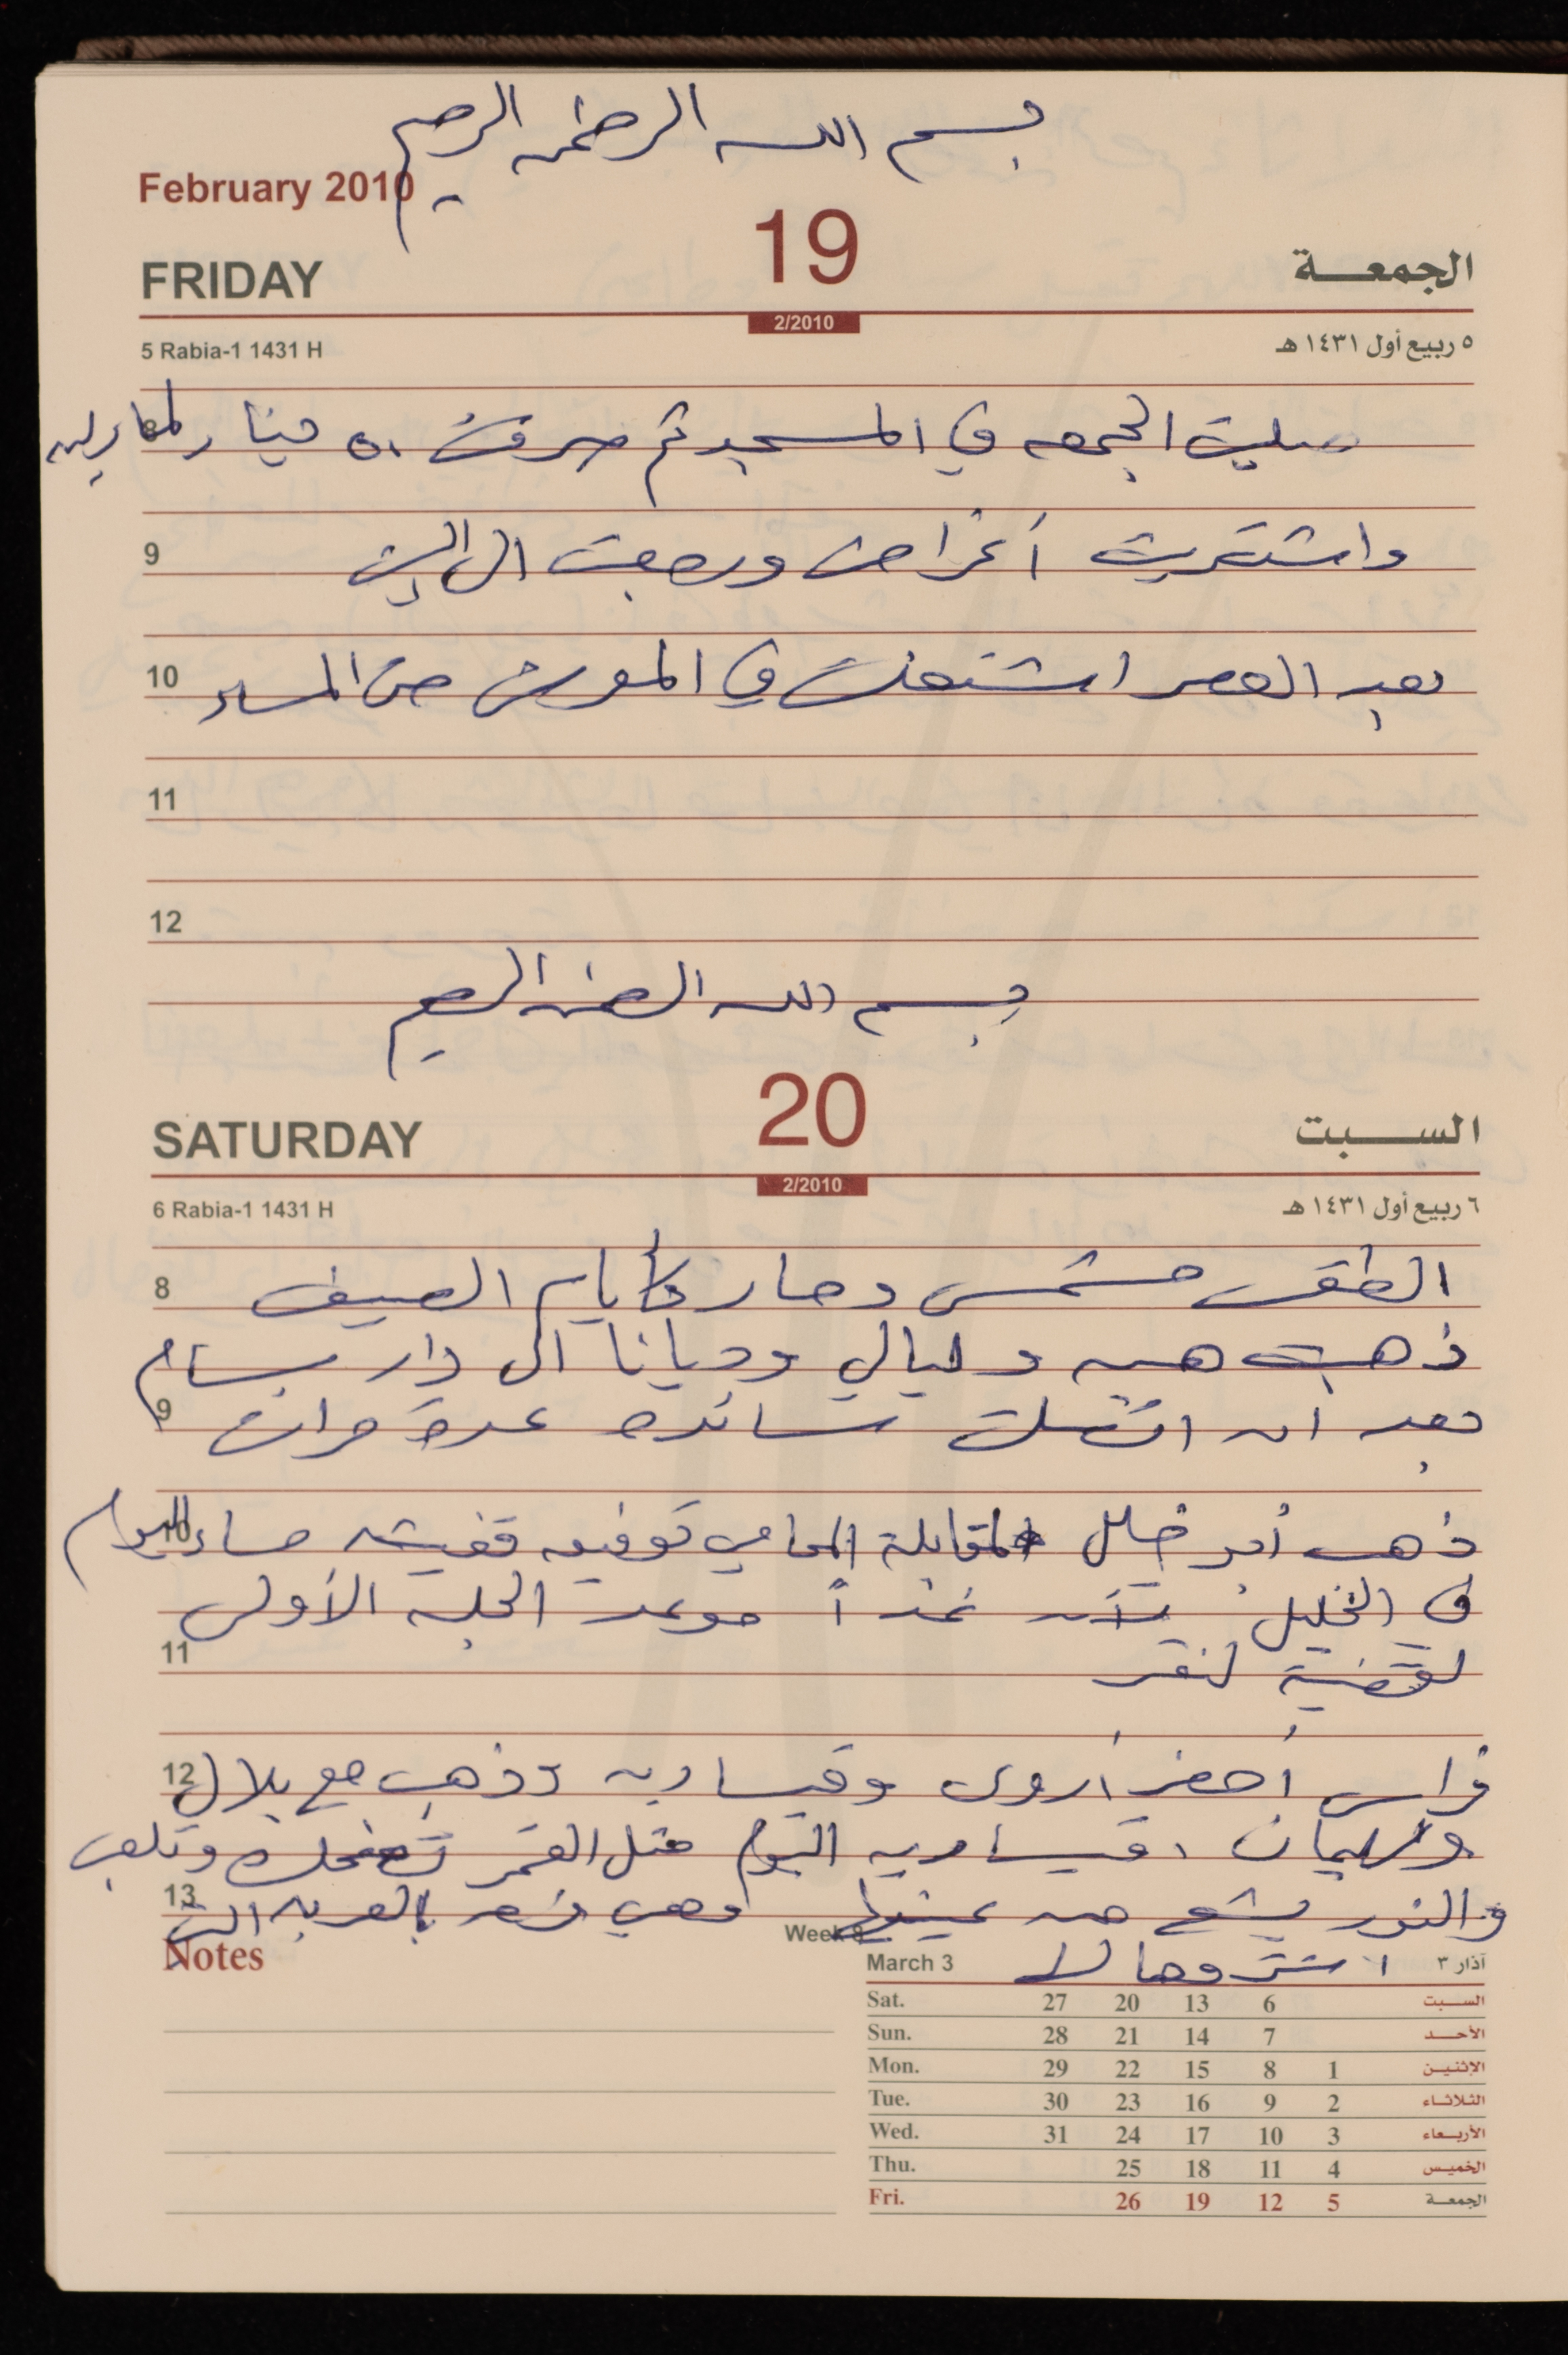 بسم الله الرحمن الرحيم
February 2010
19
FRIDAY
الجمعـــة
2/2010
5 Rabia-1 1431 H
٥ ربيع أول ١٤٣١ هـ
8
صليت الجمعه في المسجد ثم صرفت ٥٠ دينار
9 واشتريت أغراض ورجعت الى البيت
10 بعد العصر اشتغلت في المعرش حتى المساء
11
12
بسم الله الرحمن الرحيم
20
SATURDAY
الســـبت
2/2010
6 Rabia-1 1431 H
٦ ربيع أول ١٤٣١ هـ
8 الطقس مشمس وحار كأيام الصيف
ذهبت هبه وليالي وديانا الى دار بسام
9 بعد ان اتصلت سائده عدة مرات
10 ذهب أبو خليل لمقابلة المحامي توفيق قفيشه مساء اليوم
في الخليل غداً موعد الجلسه الأولى
11
لقضية
12 فراس أحضر أروى وقيساريه وذهب مع بلال
وسليمان . قيساريه اليوم مثل القمر تضحك وتلعب
13 والنور يشع من عينيها وهي بالعربه التي
اشتروها لها
Notes
Week 8
March 3
آذار ٣
Sat. 27 20 13 6 الســـبت
Sun. 28 21 14 7 الأحـــد
Mon. 29 22 15 8 1 الإثنيـن
Tue. 30 23 16 9 2 الثـلاثـاء
Wed. 31 24 17 10 3 الأربـعاء
Thu. 25 18 11 4 الخميـس
Fri. 26 19 12 5 الجمعـة